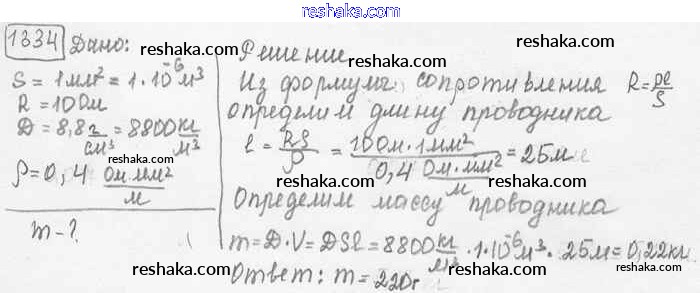 www.reshaka.com
1334 Дано:
S = 1мм² = 1·10⁻⁶м³
R = 10Ом
D = 8,8 г/см³ = 8800 кг/м³
ρ = 0,4 Ом·мм²/м
m - ?
Решение
Из формулы сопротивления R = ρl/S
определим длину проводника
l = RS/ρ = 10Ом·1мм²/0,4 Ом·мм²/м = 25м
Определим массу проводника
m = D·V = DSl = 8800 кг/м³ · 1·10⁻⁶м³ · 25м = 0,22кг
Ответ: m = 220г
reshaka.com
reshaka.com
reshaka.com
reshaka.com
reshaka.com
reshaka.com
reshaka.com
reshaka.com
reshaka.com
reshaka.com
reshaka.com